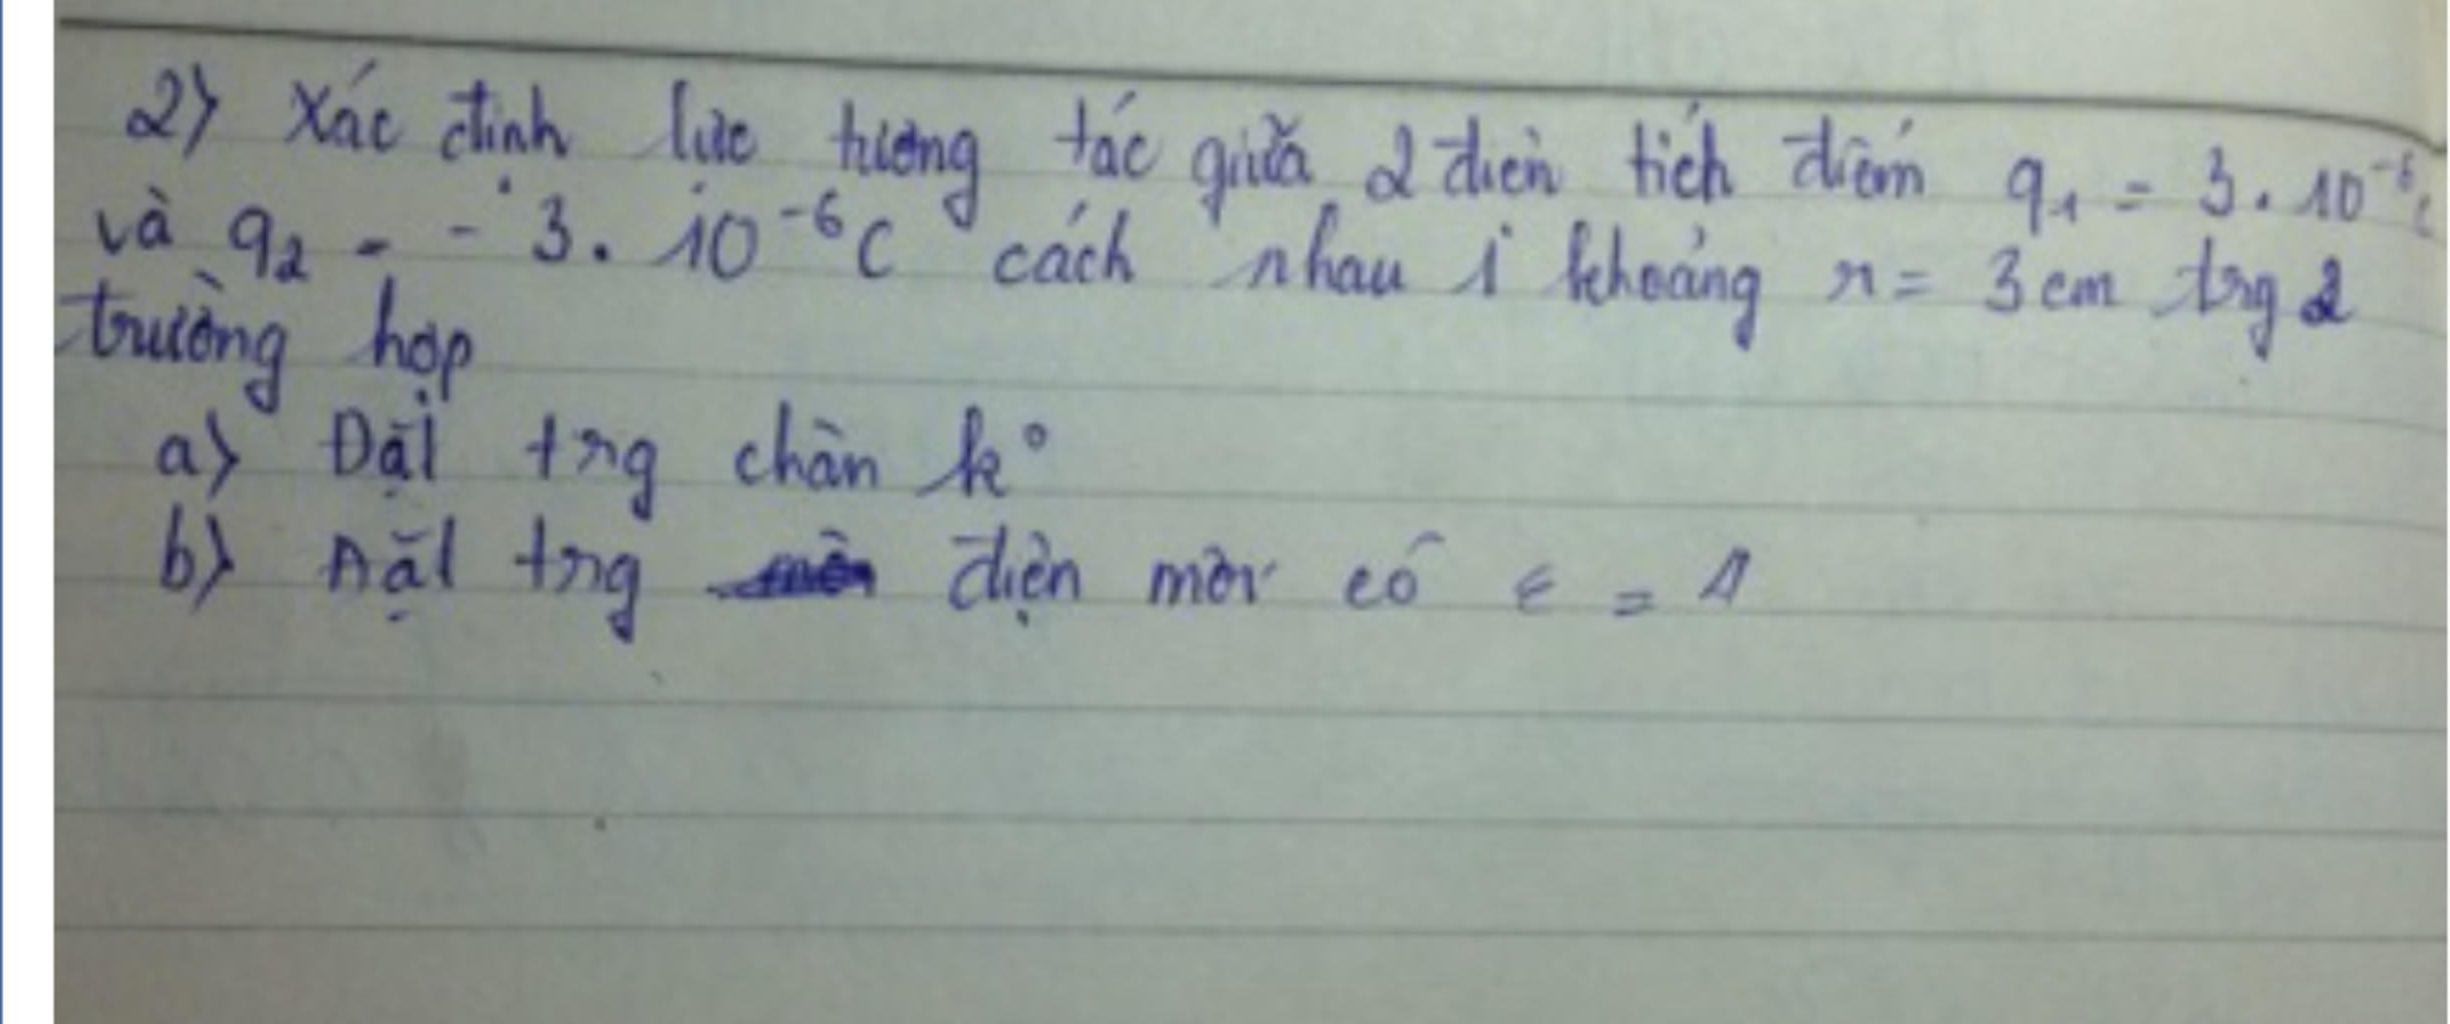 2) Xác định lực tương tác giữa 2 điện tích điểm q1 = 3. 10^-6 C
và q2 = - 3. 10^-6 C cách nhau 1 khoảng r = 3 cm trg 2
trường hợp
a) Đặt trg chân k°
b) Đặt trg điện môi có ε = 4